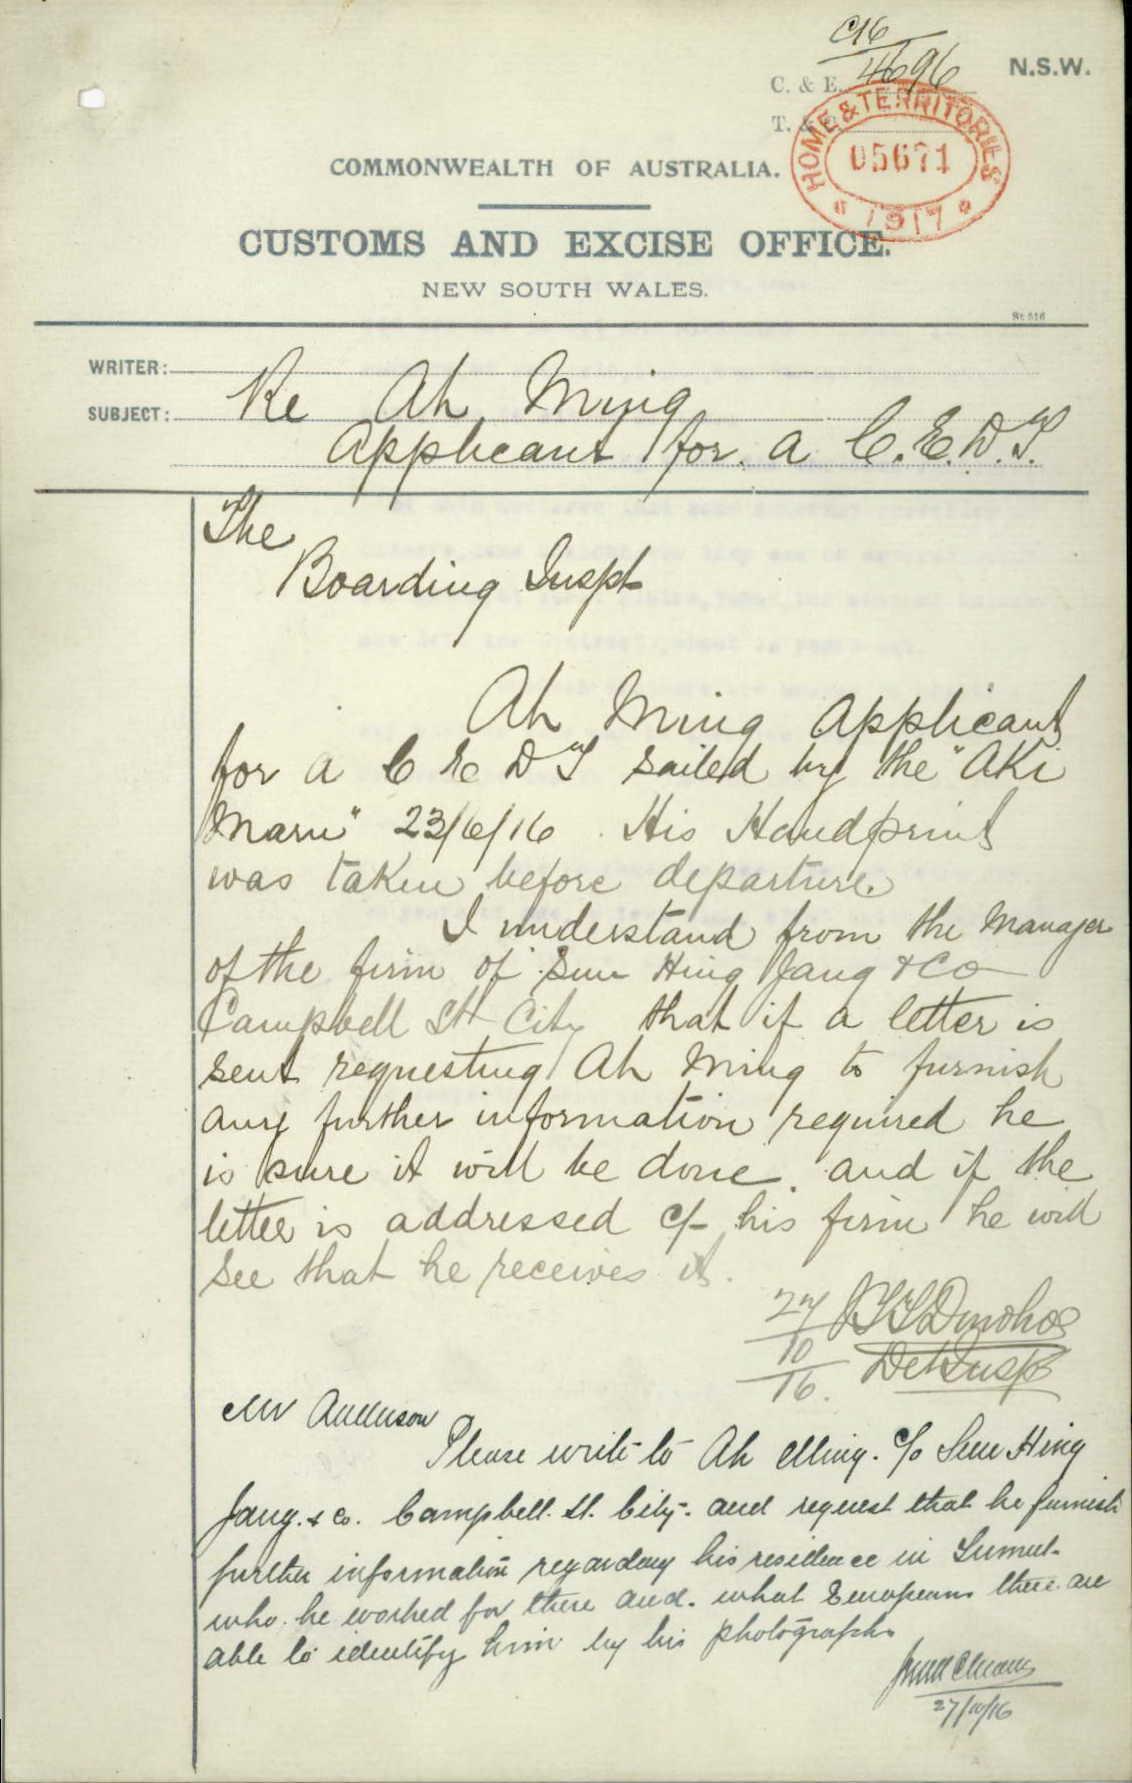 C16
4696
N.S.W.
C. & E.
T. &
HOME & TERRITORIES
05671
1917
COMMONWEALTH OF AUSTRALIA.
CUSTOMS AND EXCISE OFFICE.
NEW SOUTH WALES.
St. 516
WRITER:
SUBJECT: Re Ah Ming
Applicant for a C.E.D.T.
The
Boarding Inspt
Ah Ming Applicant
for a C E D T sailed by the "AKi
Maru" 23/6/16. His Handprint
was taken before departure.
I understand from the Manager
of the firm of Sun Hing Jang & Co
Campbell St City that if a letter is
sent requesting Ah Ming to furnish
any further information required he
is sure it will be done. and if the
letter is addressed c/- his firm he will
see that he receives it.
27/10/16. Donohoe
Det Insp
Mr Anderson
Please write to Ah Ming. c/o Sun Hing
Jang. & Co. Campbell. St. City. and request that he furnish
further information regarding his residence in
who he worked for there and. what Europeans there are
able to identify him by his photograph.
27/10/16